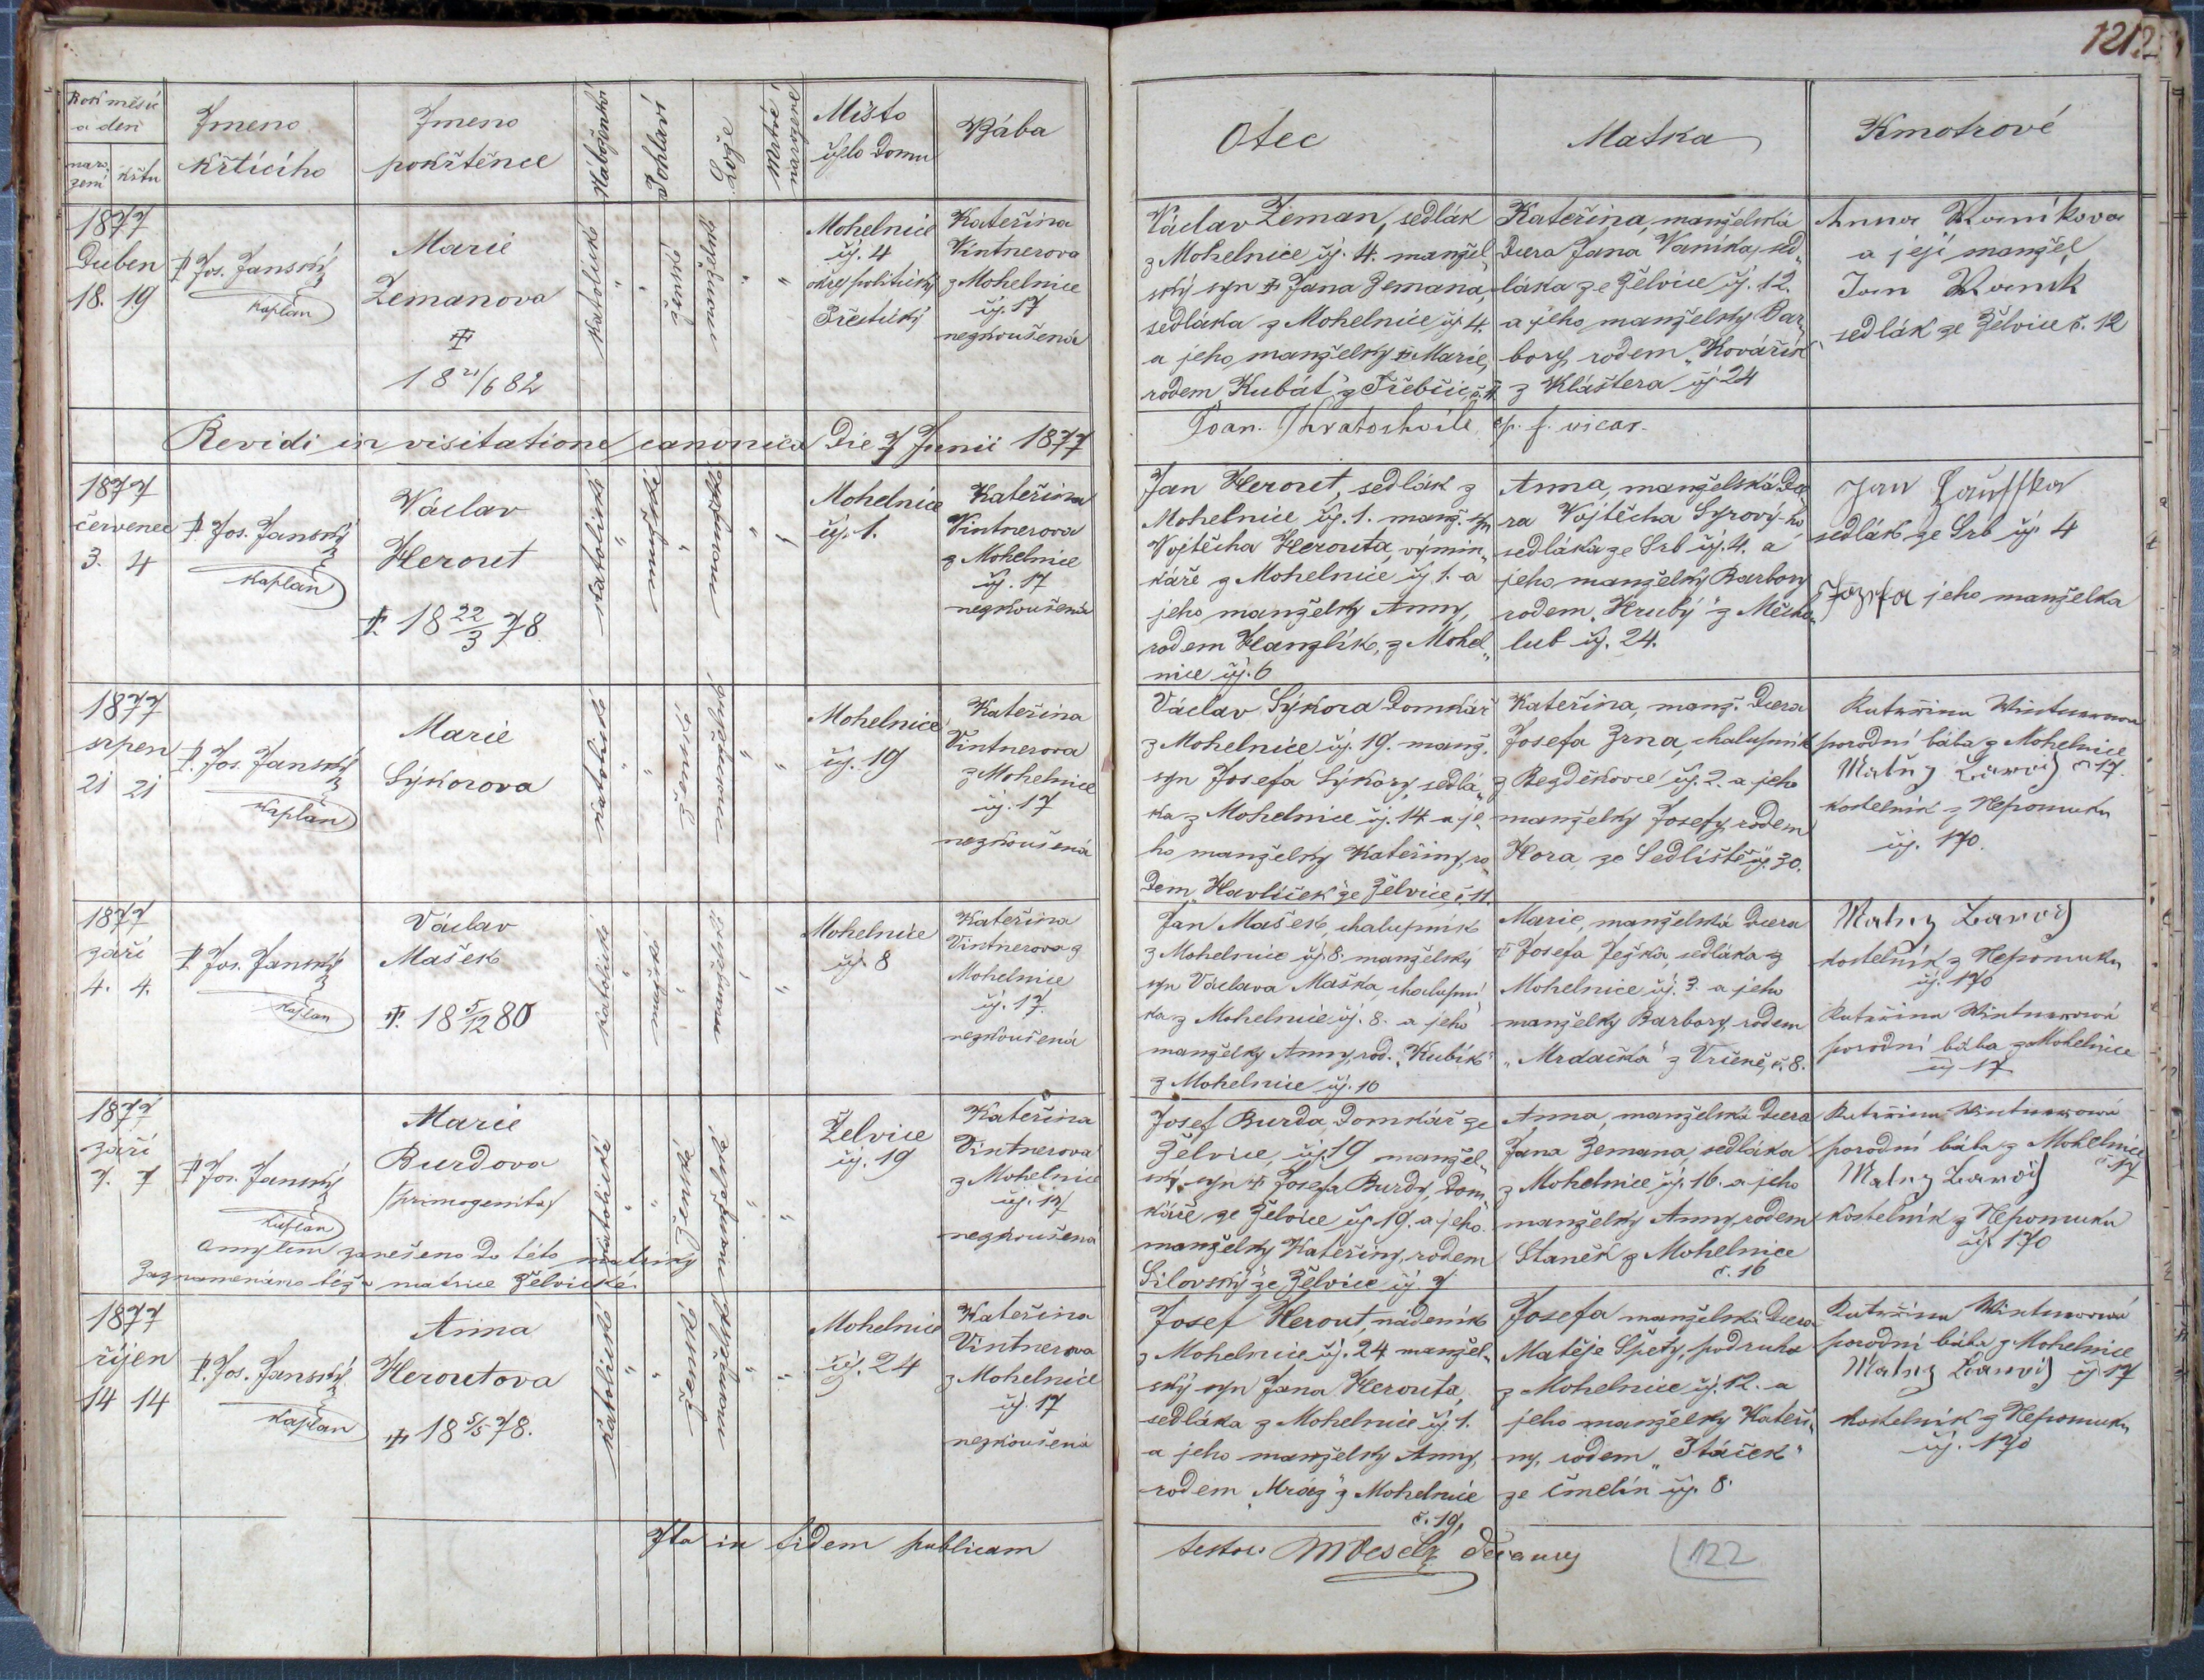 121
Rok měsíc
a den
naro
zení
křtu
Jmeno
křtícího
Jmeno
pokřtěnce
Náboženství
Pohlaví
Lože
Mrtvě
narozené
Místo
číslo domu
Bába
Otec
Matka
Kmotrové
1877
Duben
18. 19
P. Jos. Janský
kaplan
Marie
Zemanova
18 21/6 82
katolické
ženské
manželské
Mohelnice
čj. 4
okres politický
Přeštický
Kateřina
Vintnerova
z Mohelnice
čj. 17
nezkoušená
Václav Zeman, sedlák
z Mohelnice čj. 4. manžel„
ský syn † Jana Zemana,
sedláka z Mohelnice čj. 4.
a jeho manželky † Marie,
rodem „Kubát" z Třebčic, č. 4
Kateřina, manželská
dcera Jana Vaníka, sed„
láka ze Želvice čj. 12.
a jeho manželky Bar„
bory, rodem „Kovářík"
z Kláštera čj. 24
Anna Waníkova
a její manžel
Jan Waník
sedlák ze Želvice č. 12
Revidi in visitatione canonica die 7 Junii 1877
Joan. Chratochvile, p. f. vicar.
1877
červenec
3. 4
P. Jos. Janský
kaplan
Václav
Herout
†. 18 22/3 78.
katolické
mužské
manželské
Mohelnice
čj. 1.
Kateřina
Vintnerova
z Mohelnice
čj. 17
nezkoušená
Jan Herout, sedlák z
Mohelnice čj. 1. manž. syn
Vojtěcha Herouta, výmin„
káře z Mohelnice čj. 1. a
jeho manželky Anny,
rodem Hanzlík, z Mohel„
nice čj. 6
Anna, manželská dce
ra Vojtěcha Syrový-ho
sedláka ze Srb čj. 4. a
jeho manželky Barbory
rodem „Hrubý" z Měcho„
lub čj. 24.
Jan
sedlák ze Srb čj. 4
Jozefa jeho manželka
1877
srpen
21 21
P. Jos. Janský
kaplan
Marie
Sýkorova
katolické
ženské
manželské
Mohelnice
čj. 19
Kateřina
Vintnerova
z Mohelnice
čj. 17
nezkoušená
Václav Sýkora domkář
z Mohelnice čj. 19. manž.
syn Josefa Sýkory, sedlá„
ka z Mohelnice čj. 14 a je„
ho manželky Kateřiny, ro
dem „Havlíček" ze Želvice, č. 11.
Kateřina, manž. dcera
Josefa Zrna, chalupník
z Bezděkovce čj. 2. a jeho
manželky Josefy, rodem
Hora, ze Sedliště čj. 30.
Kateřina Wintnerowa
porodní bába z Mohelnice
č 17.
Matěj
kostelník z Nepomuku
čj. 170.
1877
září
4. 4.
P. Jos. Janský
kaplan
Václav
Mašek
†. 18 5/12 80
katolické
mužské
manželské
Mohelnice
čj. 8
Kateřina
Vintnerova z
Mohelnice
čj. 17.
nezkoušená
Jan Mašek, chalupník
z Mohelnice čj. 8. manželský
syn Václava Maška, chalupní
ka z Mohelnice čj. 8. a jeho
manželky Anny, rod. „Kubík"
z Mohelnice čj. 10
Marie, manželská dcera
† Josefa Ježka, sedláka z
Mohelnice čj. 3. a jeho
manželky Barbory, rodem
„Mrdačka" z Vrčeně, č. 8.
Matěj
kostelník z Nepomuku
čj. 170
Kateřina Wintnerowá
porodní bába z Mohelnice
čj 17
1877
září
7. 7
P. Jos. Janský
kaplan
Marie
Burdova
(primogenita)
katolické
ženské
manželské
omylem zanešeno do této matriky
zaznamenáno též v matrice Želvické.
Želvice
čj. 19
Kateřina
Vintnerova
z Mohelnice
čj. 17
nezkoušená
Josef Burda, domkář ze
Želvice, čj. 19 manžel„
ský syn † Josefa Burdy, dom„
káře ze Želvice čj. 19. a jeho
manželky Kateřiny, rodem
Silovský ze Želvice čj 7
Anna, manželská dcera
Jana Zemana, sedláka
z Mohelnice čj. 16. a jeho
manželky Anny, rodem
Staněk z Mohelnice
č. 16
Kateřina Wintnerowá
porodní bába z Mohelnice
č. 17
Matěj
kostelník z Nepomuku
čj. 170
1877
říjen
14 14
P. Jos. Janský
kaplan
Anna
Heroutova
† 18 5/5 78.
katolické
ženské
manželské
Mohelnice
čj. 24
Kateřina
Vintnerova
z Mohelnice
čj. 17
nezkoušená
Josef Herout, nádeník
z Mohelnice čj. 24 manžel„
ský syn Jana Herouta,
sedláka z Mohelnice čj. 1.
a jeho manželky Anny,
rodem „Mráz" z Mohelnice
č. 19,
Josefa manželská dcera
Matěje Špety, podruha
z Mohelnice čj. 12. a
jeho manželky Kateři„
ny, rodem „Ptáček"
ze Čmelín čj. 8.
Kateřina Wintnerowá
porodní bába z Mohelnice
čj 17
Matěj
kostelník z Nepomuku
čj. 170
Ita in fidem publicam
testor Veselý
122